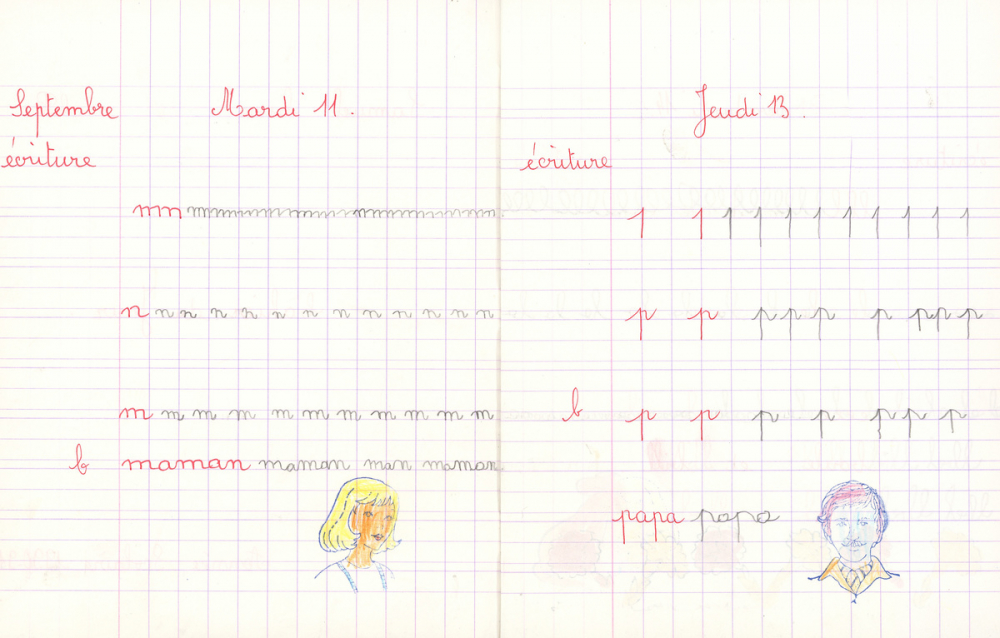 Septembre Mardi 11.
écriture
n n n n n n n n n n n n n
m m m m m m m m m m m
b maman maman man maman
Jeudi 13.
écriture
1 1 1 1 1 1 1 1 1 1 1
p p p p p p ppp
b p p p p p p p
papa papa